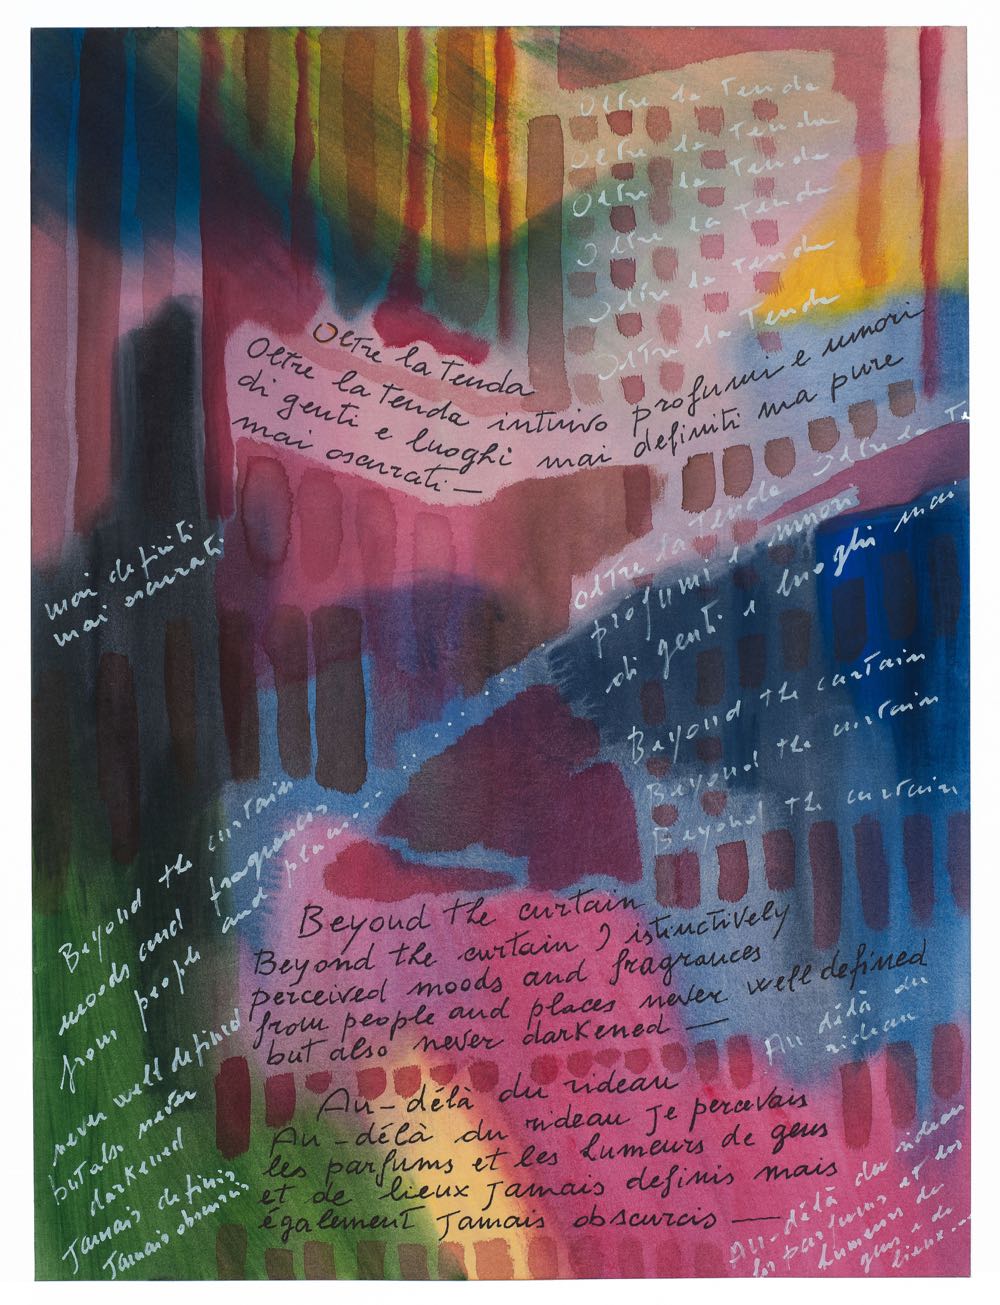 Oltre la Tenda
Oltre la Tenda
Oltre la Tenda
Oltre la Tenda
Oltre la Tenda
Oltre la Tenda
Oltre la Tenda
Oltre la Tenda intuivo profumi e umori
di genti e luoghi mai definiti ma pure
mai oscurati —
Oltre la Te
oltre la Tenda
profumi e umori
di genti e luoghi mai
mai definiti
mai oscurati
Beyond the curtain
Beyond the curtain
Beyond the curtain
Beyond the curtain
moods and fragrances
from people and places...
never well defined
but also never
darkened
Jamais definis
Jamais obscurcis
Beyond the curtain
Beyond the curtain I istinctively
perceived moods and fragrances
from people and places never well defined
but also never darkened —
Au délà du
rideau
Au-délà du rideau
Au-délà du rideau Je percevais
les parfums et les humeurs de gens
et de lieux Jamais definis mais
également Jamais obscurcis —
Au-délà du rideau
les parfums et les
humeurs de
gens e de
lieux...